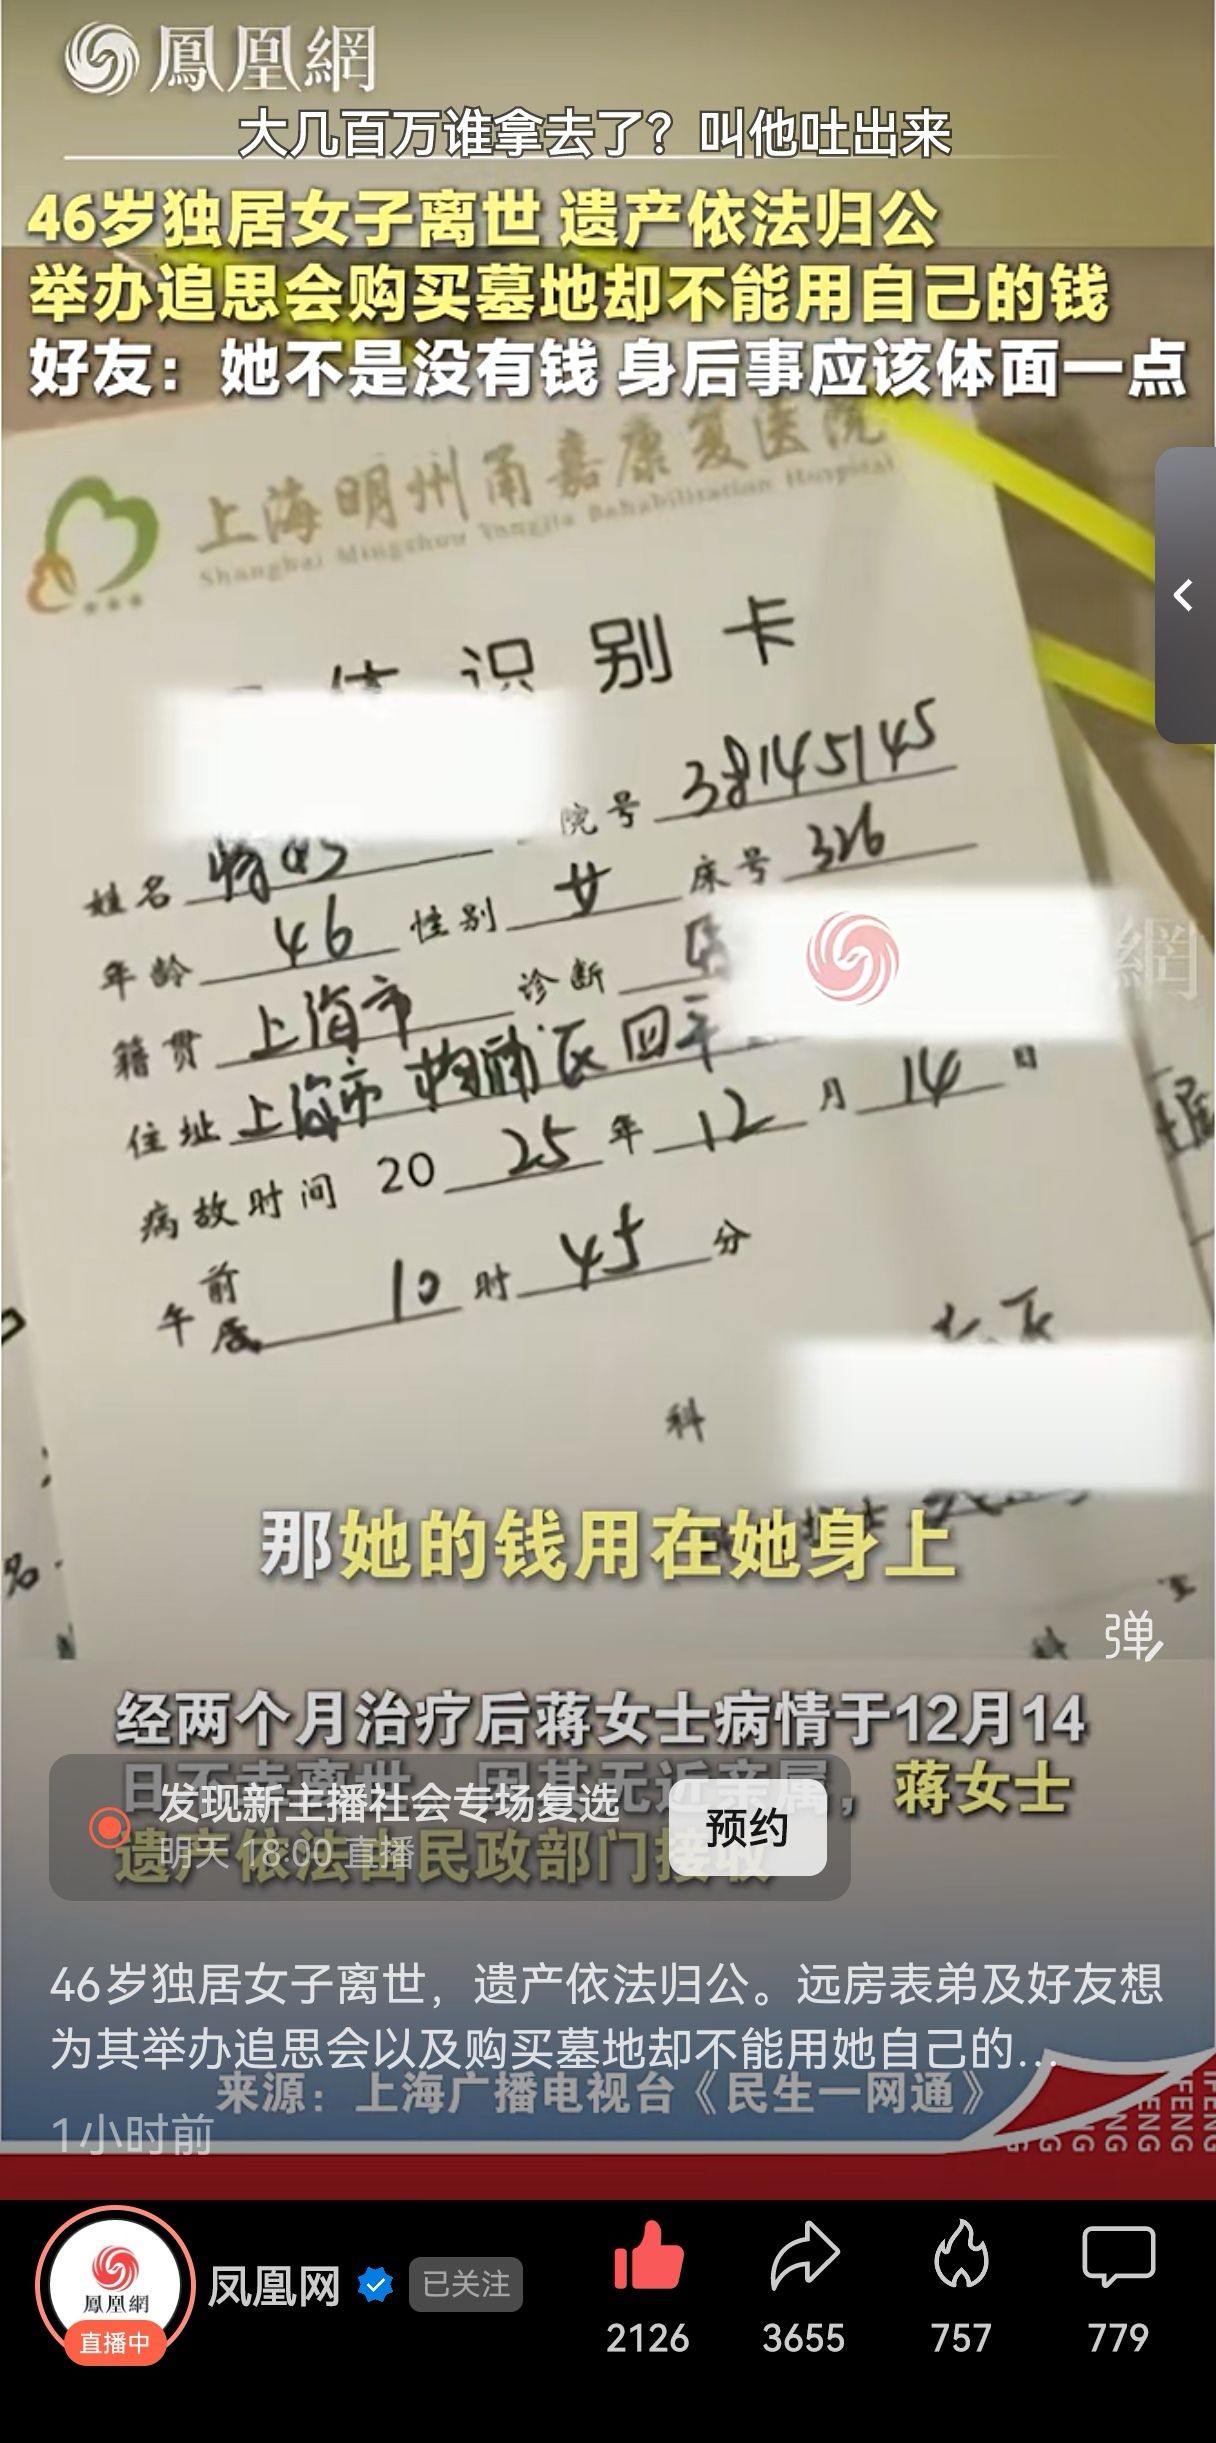 鳳凰網
大几百万谁拿去了？叫他吐出来
46岁独居女子离世 遗产依法归公
举办追思会购买墓地却不能用自己的钱
好友：她不是没有钱 身后事应该体面一点
上海明州甬嘉康复医院
Shanghai Mingzhou Yongjia Rehabilitation Hospital
体识别卡
院号 38145145
姓名
年龄 46 性别 女 床号 326
籍贯 上海市 诊断
住址 上海市 杨浦区 四平
病故时间 2025年12月14日
午前 10时45分
後
科
網
那她的钱用在她身上
弹
经两个月治疗后蒋女士病情于12月14
日不幸离世，因其无近亲属，蒋女士
遗产依法由民政部门接收
发现新主播社会专场复选
明天 18:00 直播
预约
46岁独居女子离世，遗产依法归公。远房表弟及好友想
为其举办追思会以及购买墓地却不能用她自己的...
来源：上海广播电视台《民生一网通》
1小时前
鳳凰網
直播中
凤凰网
已关注
2126
3655
757
779